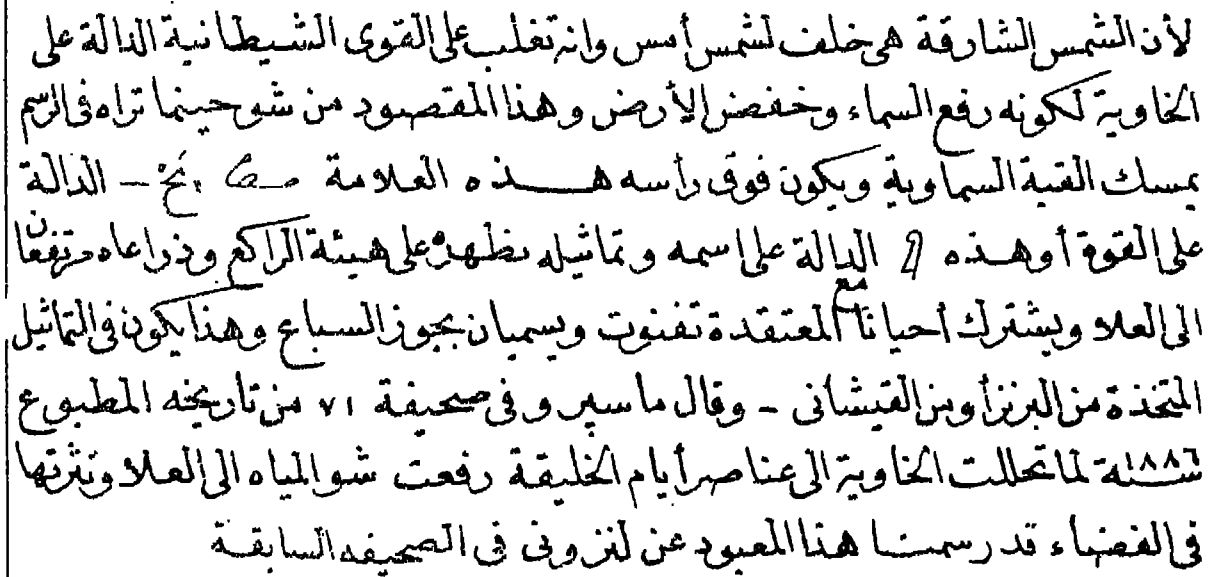 لأن الشمس الشارقة هى خلف لشمس أمس وانه تغلب على القوى الشيطانية الدالة على
الخاوية لكونه رفع السماء وخفض الأرض وهذا المقصود من شوحينما تراه فى الرسم
يمسك القبة السماوية ويكون فوق رأسه هـذه العلامة نخ - الدالة
على القوة أوهذه الدالة على اسمه وتماثيله تظهره على هيئة الراكع وذراعاه مرتفعان
الى العلاء ويشترك أحيانا مع المعتقدة تفنوت ويسميان بجوز السباع وهذا يكون فى التماثيل
المتخذة من البرنز أومن القيشانى - وقال ماسبرو فى صحيفة ٧١ من تاريخه المطبوع
سنة ١٨٨٦ لما تحللت الخاوية الى عناصر أيام الخليقة رفعت شو المياه الى العلا ونثرتها
فى الفضاء قد رسمنا هذا المعبود عن لنزونى فى الصحيفه السابقة